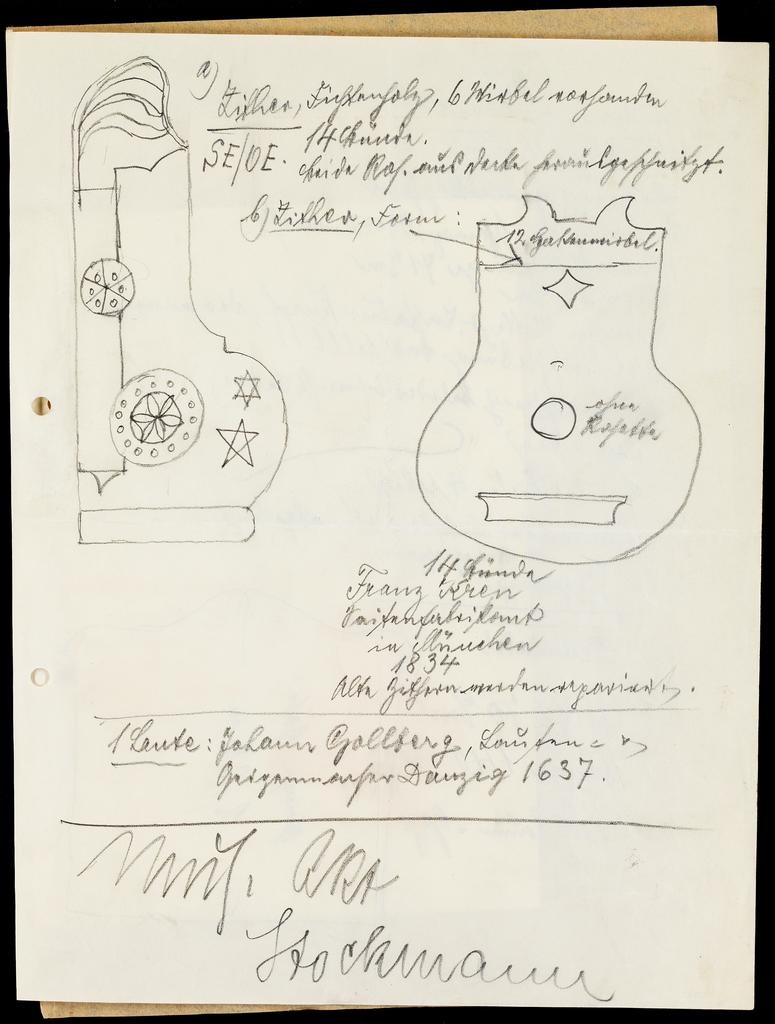 a) Zither, Fichtenholz, 6 Wirbel vorhanden
SE/OE. 14 Bünde.
beide Ros. aus Decke herausgeschnitzt.
b) Zither, Form :
12 Hakenwirbel.
ohne
Rosette
14 Bünde
Franz Kren
Saitenfabrikant
in München
1834
Alte Zithern werden repariert.
1 Laute : Johann Gollberg, Lauten- u
Geigenmacher Danzig 1637.
Mus. Akt
Stockmann